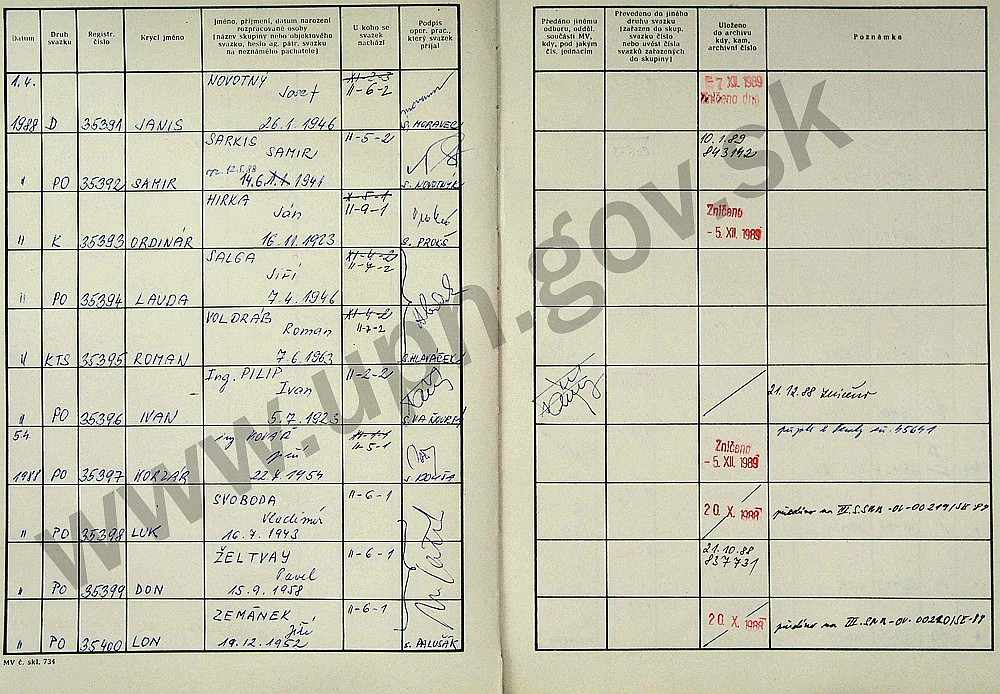 Datum
Druh svazku
Registr. číslo
Krycí jméno
Jméno, příjmení, datum narození
rozpracované osoby
(název skupiny nebo objektového
svazku, heslo ag. pátr. svazku
na neznámého pachatele)
U koho se
svazek
nachází
Podpis
oper. prac.,
který svazek
přijal
Předáno jinému
odboru, odděl.
součásti MV,
kdy, pod jakým
čís. jednacím
Převedeno do jiného
druhu svazku
(zařazen do skup.
svazku číslo
nebo uvést čísla
svazků zařazených
do skupiny)
Uloženo
do archivu
kdy, kam,
archivní číslo
Poznámka
1.4. NOVOTNÝ XI-2-3
Josef II-6-2 = 7 XII. 1989
Zničeno
1988 D 35391 JANIS 26.1.1946 S. MORAVEC
SARKIS II-5-2 10.1.89
SAMIR 843142
12.5.88
" PO 35392 SAMIR 14.6. 1941 S. NOVOTNÝ
HIRKA X-5-1
Ján II-9-1 Zničeno
" K 35393 ORDINÁR 16.11.1923 S. PROKŠ - 5. XII. 1989
SALGA XI-4-2
Jiří II-7-2
" PO 35394 LAUDA 7.4.1946
VOLDRÁB XI-4-2
Roman II-7-2
" KTS 35395 ROMAN 7.6.1963 S. HLAVÁČEK
Ing. PILIP II-2-2
Ivan 21.12.88 zničeno
" PO 35396 IVAN 5.7.1923
5.4. ing KOVÁŘ II-5-1 45641
Zničeno
1988 PO 35397 KORZÁR 22.4.1954 - 5. XII. 1989
SVOBODA II-6-1
Vladimír 20. X. 1988
" PO 35398 LUK 16.7.1943
ŽELTVAY II-6-1 21.10.88
Pavel 837731
" PO 35399 DON 15.9.1958
ZEMÁNEK II-6-1
Jiří 20. X. 1988
" PO 35400 LON 19.12.1952 S. PALUŠÁK
MV č. skl. 734
www.upn.gov.sk